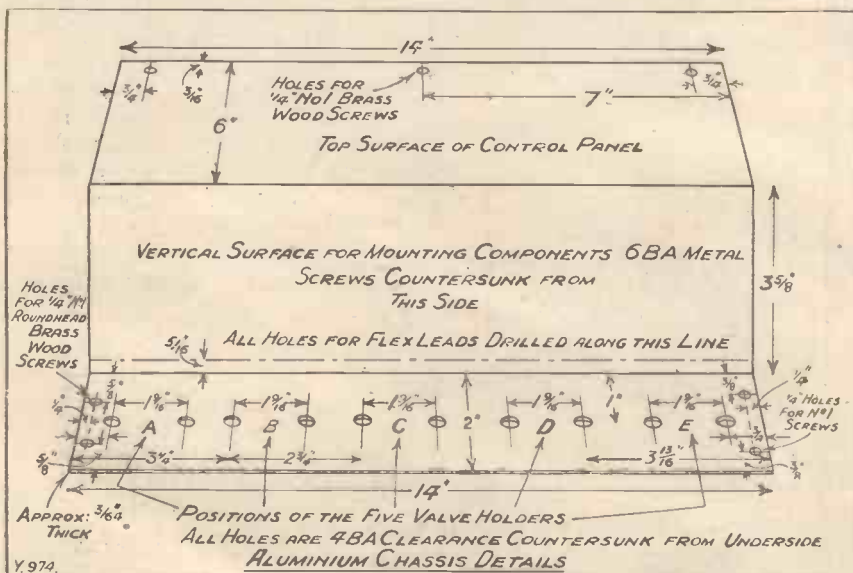 14"
3/4"
3/16"
HOLES FOR
1/4" NO1 BRASS
WOOD SCREWS
7"
3/4"
6"
TOP SURFACE OF CONTROL PANEL
VERTICAL SURFACE FOR MOUNTING COMPONENTS 6BA METAL
SCREWS COUNTERSUNK FROM
THIS SIDE
3 5/8"
HOLES
FOR 1/4" NO1
ROUNDHEAD
BRASS
WOOD
SCREWS
5/16"
ALL HOLES FOR FLEX LEADS DRILLED ALONG THIS LINE
5/8"
1/4"
1 9/16"
1 9/16"
1 9/16"
1 9/16"
1 9/16"
2"
1"
3/8"
1/4"
1/4" HOLES
FOR NO1
SCREWS
A B C D E
3/4"
5/8"
3 1/4"
2 3/4"
3 13/16"
3/8"
14"
APPROX: 3/64"
THICK
POSITIONS OF THE FIVE VALVE HOLDERS
ALL HOLES ARE 4BA CLEARANCE COUNTERSUNK FROM UNDERSIDE
ALUMINIUM CHASSIS DETAILS
Y.974.